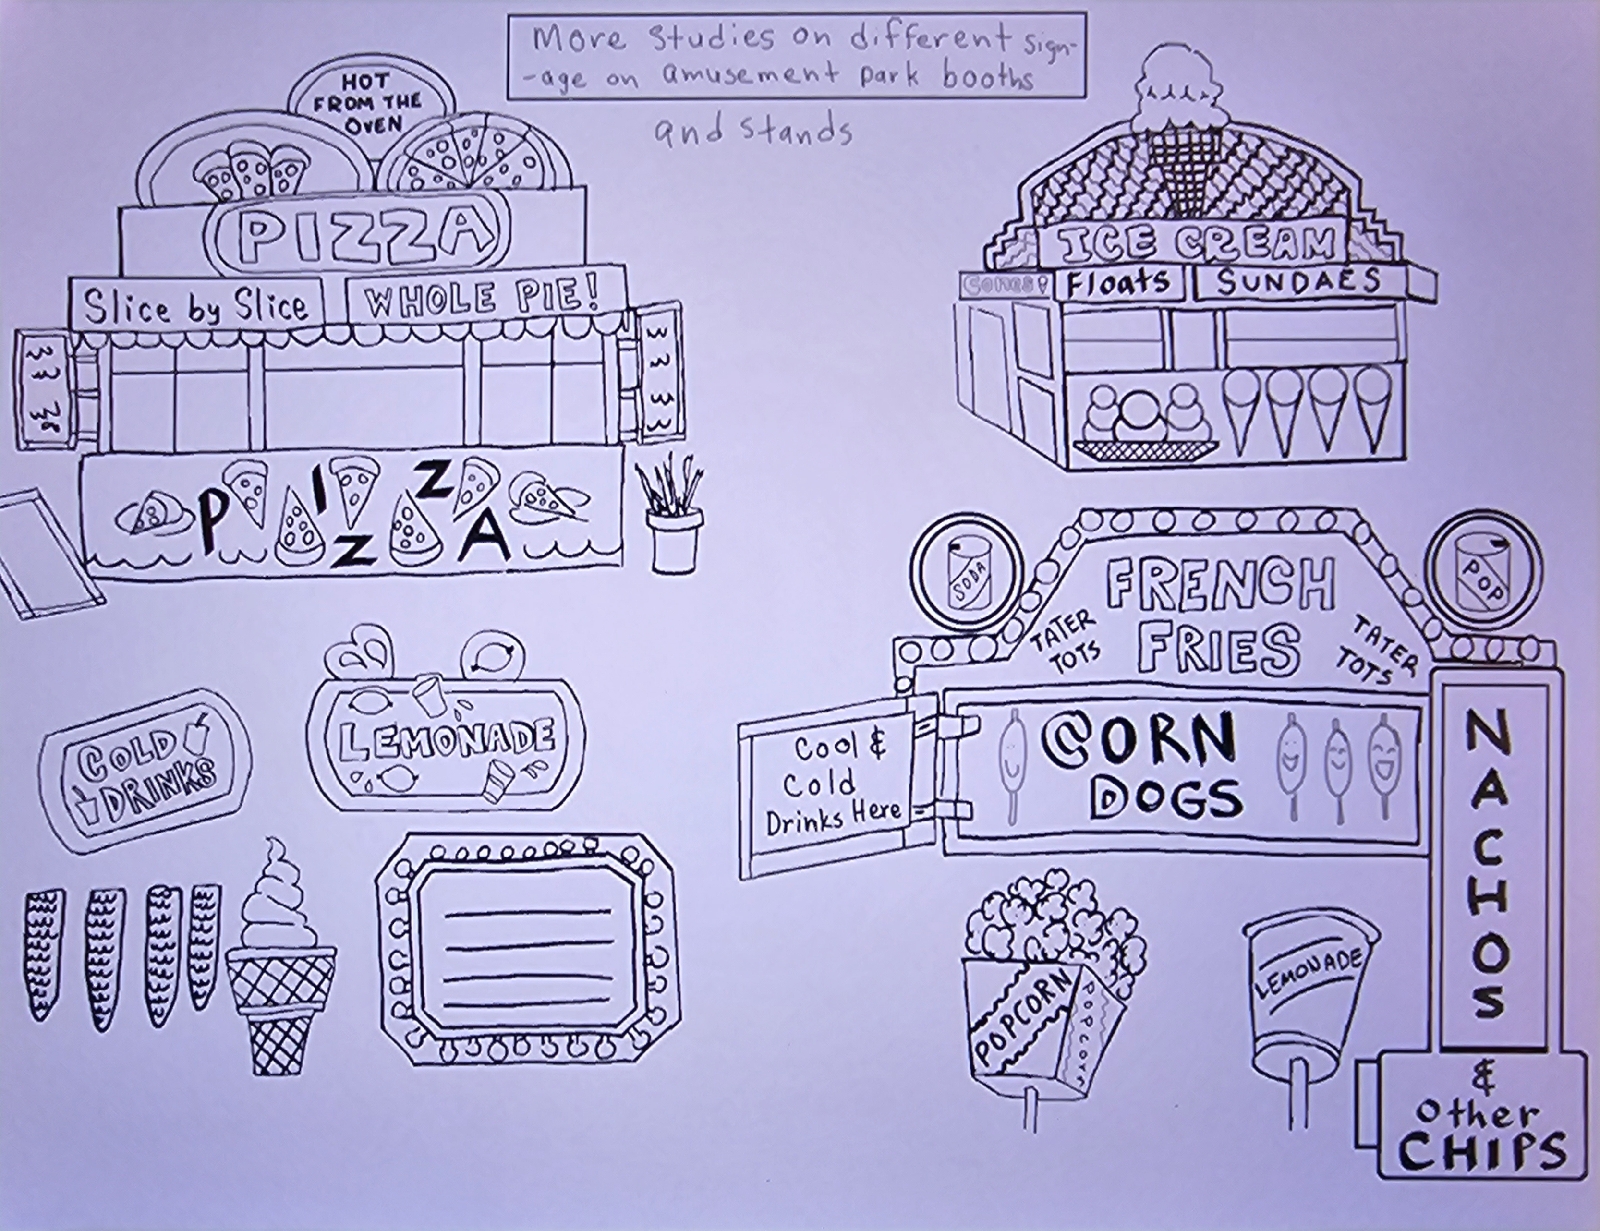 More studies on different sign-
-age on amusement park booths
and stands
HOT
FROM THE
OVEN
PIZZA
Slice by Slice
WHOLE PIE!
PIZZA
ICE CREAM
Cones
Floats
SUNDAES
SODA
POP
FRENCH
FRIES
TATER
TOTS
TATER
TOTS
Cool &
Cold
Drinks Here
CORN
DOGS
NACHOS
&
Other
CHIPS
COLD
DRINKS
LEMONADE
POPCORN
POPCORN
LEMONADE